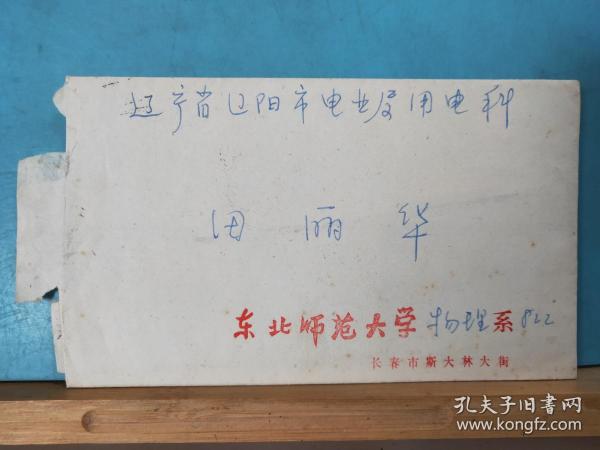 辽宁省辽阳市电业局用电科
田丽华
东北师范大学物理系822
长春市斯大林大街
孔夫子旧书网
www.kongfz.com